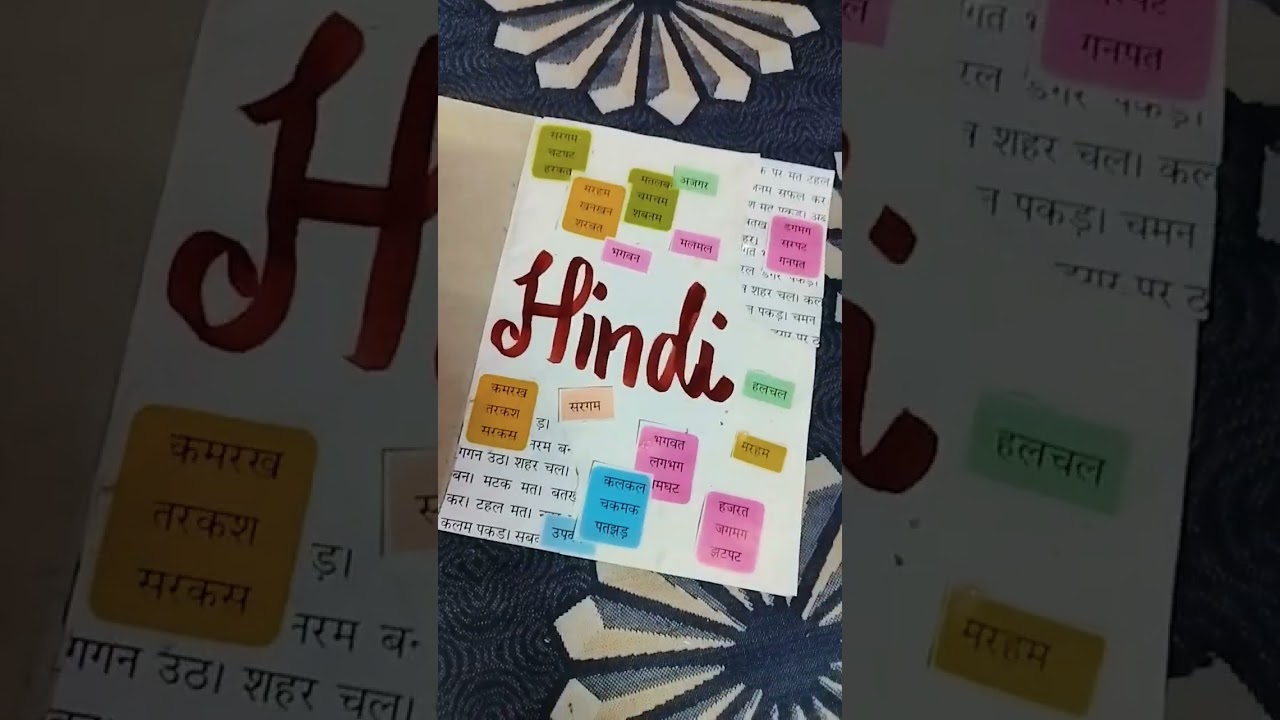 सरगम
चटपट
हरकत
मतलब
चमचम
शबनम
अजगर
मरहम
खनखन
शरबत
भगवन
मलमल
क पर मत टहल
सफल कर
मत पकड़।
डगमग
सरपट
गनपत
शहर चल। कल
पकड़। चमन
पर
Hindi
हलचल
कमरख
तरकश
सरकस
सरगम
ड़।
नरम ब
गगन उठ। शहर चल।
बन। मटक मत। बतख
कर। टहल मत।
कलम पकड।
भगवत
लगभग
मघट
मरहम
कलकल
चकमक
पतझड़
उपव
हजरत
जगमग
झटपट